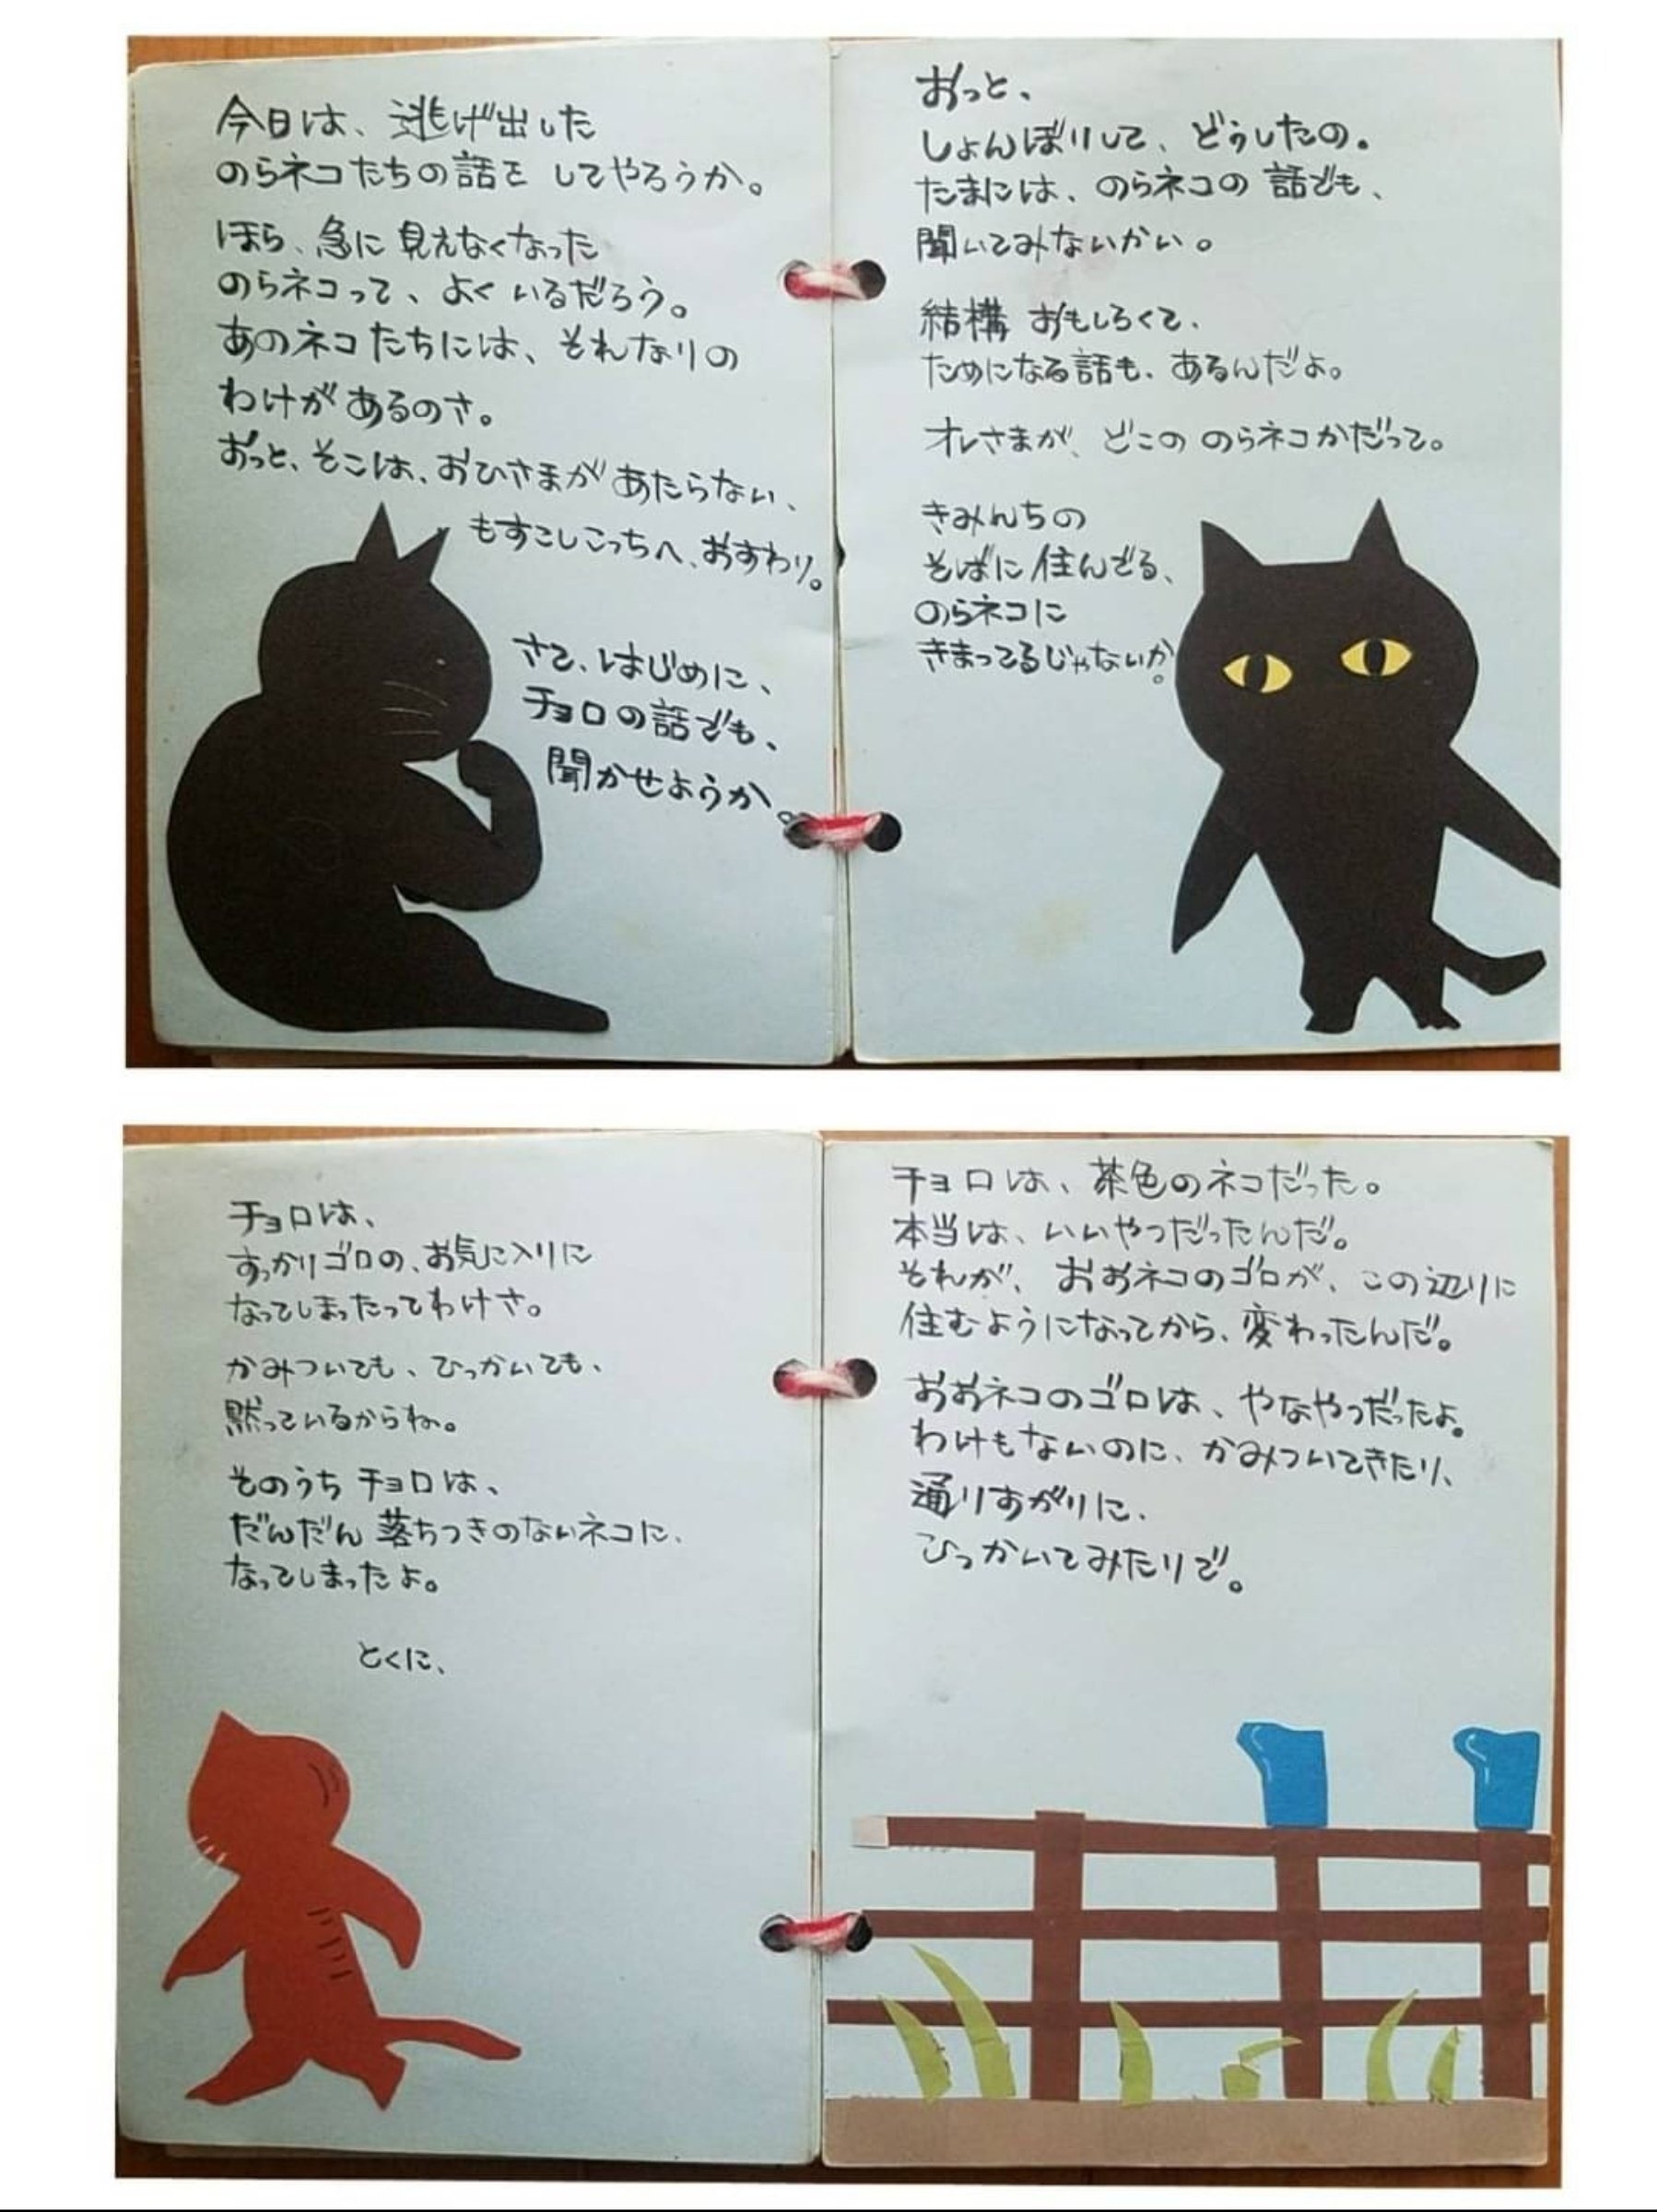 おっと、
しょんぼりして、どうしたの。
たまには、のらネコの話でも、
聞いてみないかい。
結構おもしろくて、
ためになる話も、あるんだよ。
オレさまが、どこののらネコかだって。
きみんちの
そばに住んでる、
のらネコに
きまってるじゃないか。
今日は、逃げ出した
のらネコたちの話をしてやろうか。
ほら、急に見えなくなった
のらネコって、よくいるだろう。
あのネコたちには、それなりの
わけがあるのさ。
おっと、そこは、おひさまがあたらない、
もすこしこっちへ、おすわり。
さて、はじめに、
チョロの話でも、
聞かせようか。
チョロは、茶色のネコだった。
本当は、いいやつだったんだ。
それが、おおネコのゴロが、この辺りに
住むようになってから、変わったんだ。
おおネコのゴロは、やなやつだったよ。
わけもないのに、かみついてきたり、
通りすがりに、
ひっかいてみたりで。
チョロは、
すっかりゴロの、お気に入りに
なってしまったってわけさ。
かみついても、ひっかいても、
黙っているからね。
そのうちチョロは、
だんだん落ちつきのないネコに、
なってしまったよ。
とくに、